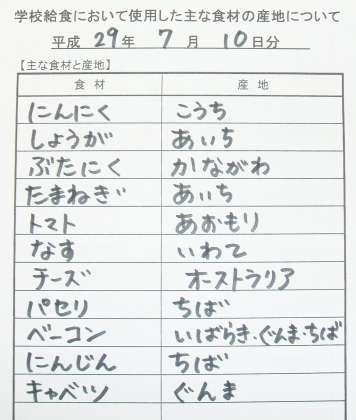 学校給食において使用した主な食材の産地について
平成 29年 7月 10日分
【主な食材と産地】
食材 産地
にんにく こうち
しょうが あいち
ぶたにく かながわ
たまねぎ あいち
トマト あおもり
なす いわて
チーズ オーストラリア
パセリ ちば
ベーコン いばらき、ぐんま、ちば
にんじん ちば
キャベツ ぐんま